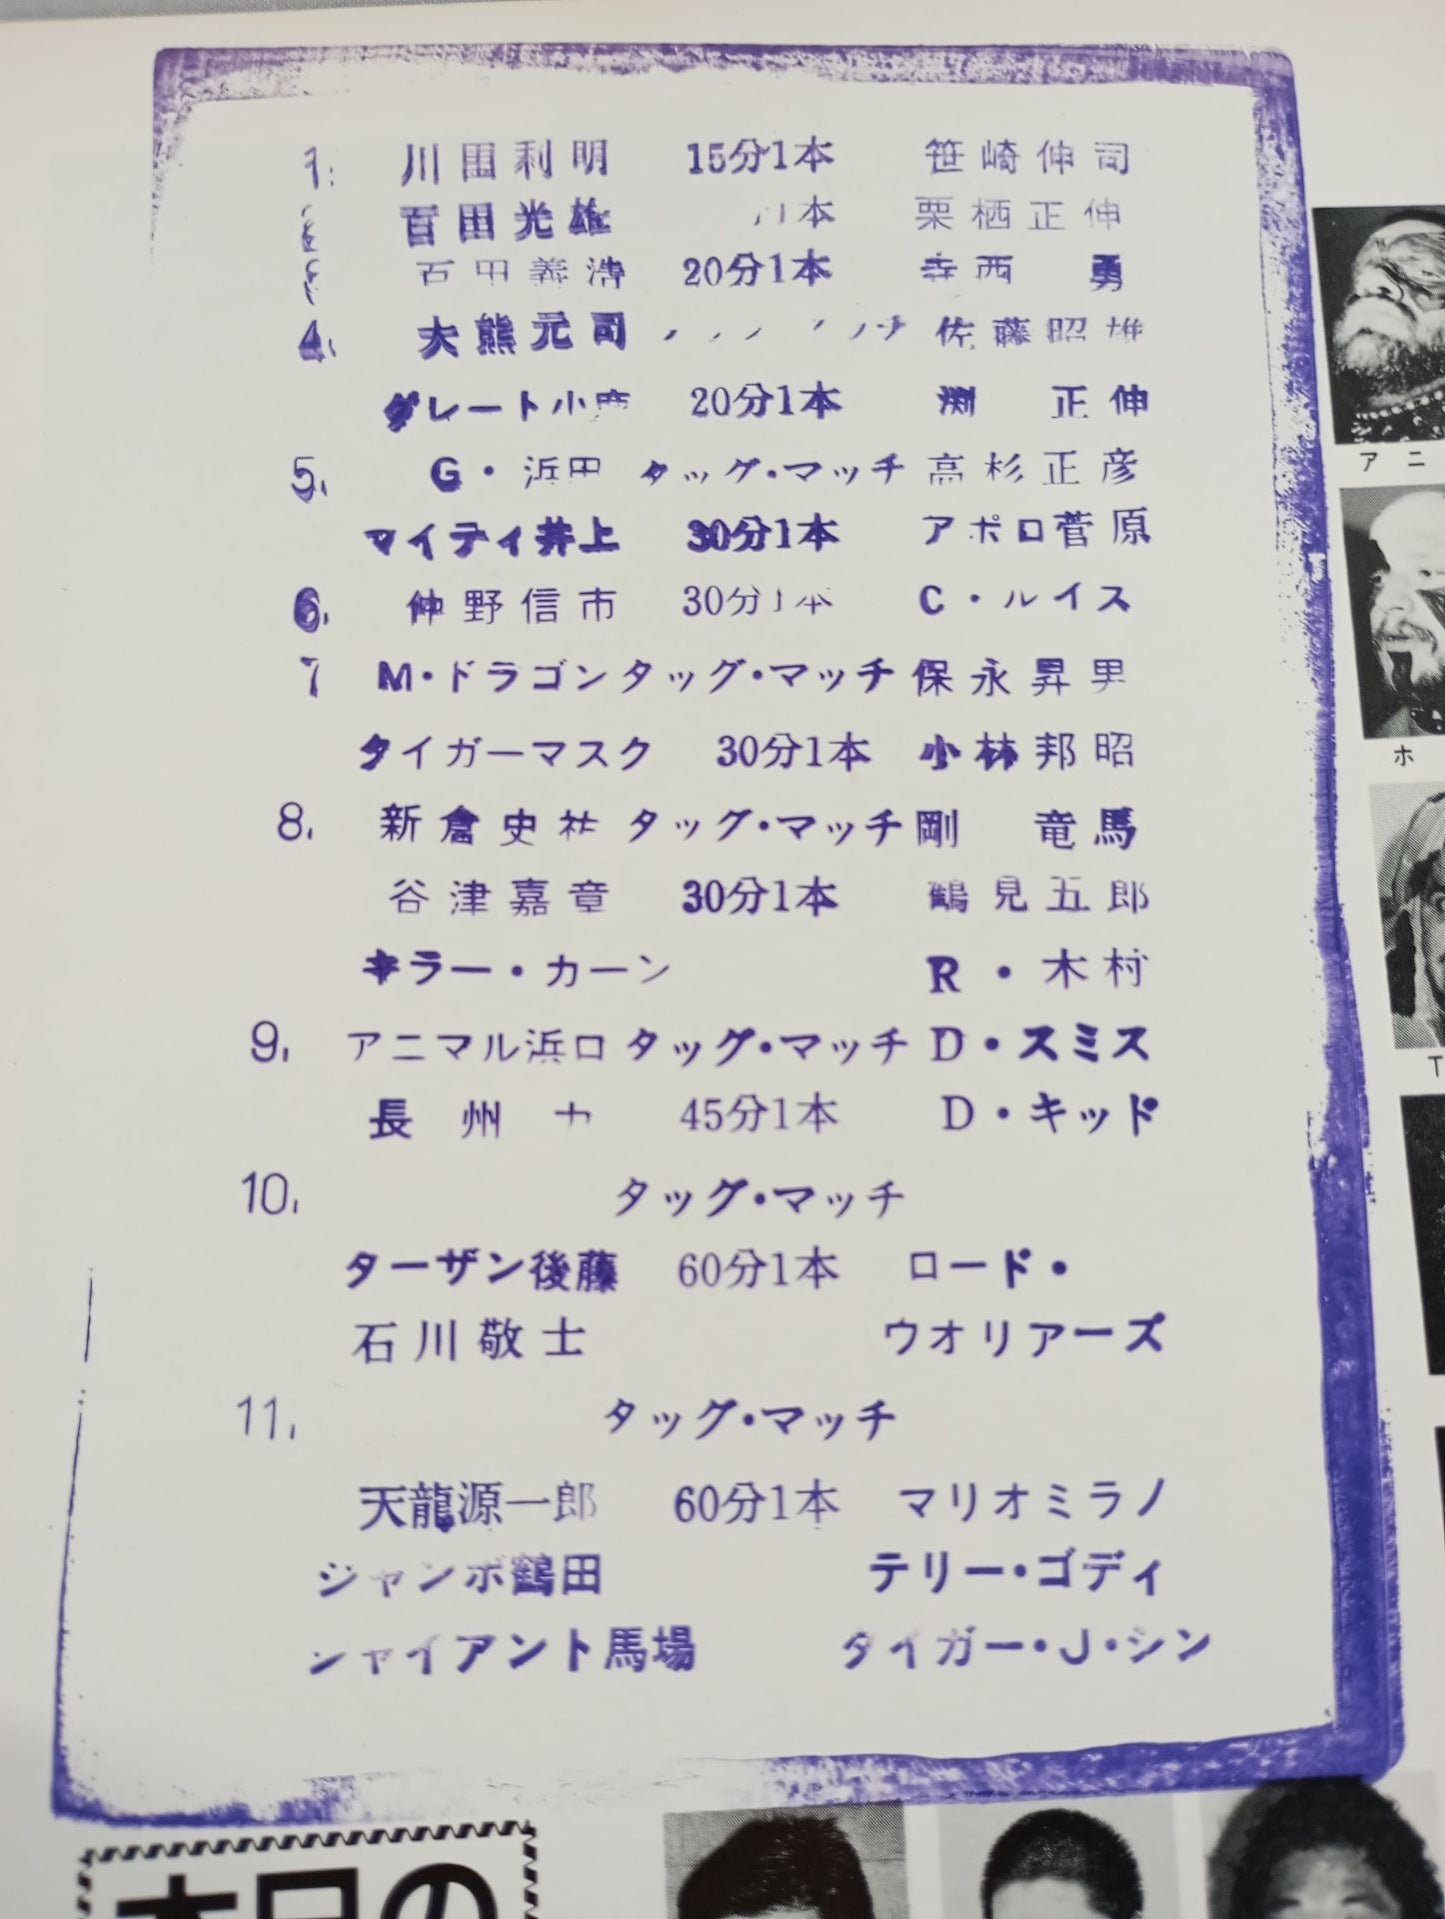 1. 川田利明 15分1本 笹崎伸司
百田光雄 〃1本 栗栖正伸
石田義浩 20分1本 寺西 勇
4. 大熊元司 佐藤昭雄
グレート小鹿 20分1本 渕 正伸
5. G・浜田 タッグ・マッチ 高杉正彦
マイティ井上 30分1本 アポロ菅原
6. 仲野信市 30分1本 C・ルイス
7 M・ドラゴン タッグ・マッチ 保永昇男
タイガーマスク 30分1本 小林邦昭
8. 新倉史祐 タッグ・マッチ 剛 竜馬
谷津嘉章 30分1本 鶴見五郎
キラー・カーン R・木村
9. アニマル浜口 タッグ・マッチ D・スミス
長州力 45分1本 D・キッド
10. タッグ・マッチ
ターザン後藤 60分1本 ロード・
石川敬士 ウオリアーズ
11. タッグ・マッチ
天龍源一郎 60分1本 マリオミラノ
ジャンボ鶴田 テリー・ゴディ
ジャイアント馬場 タイガー・J・シン
アニ
ホ
T
本日の